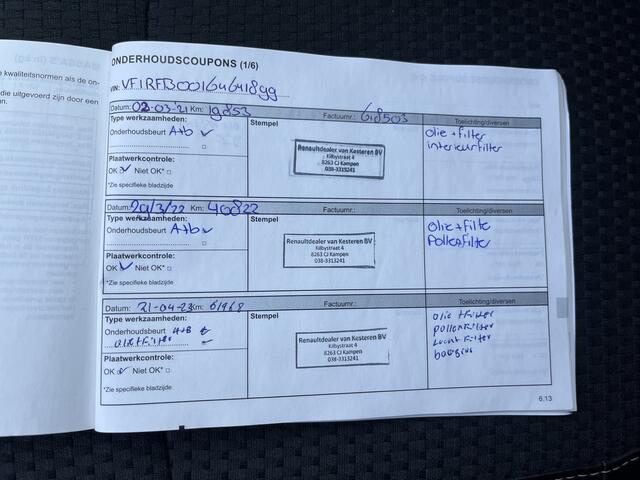 e kwaliteitsnormen als de on-
die uitgevoerd zijn door een
ONDERHOUDSCOUPONS (1/6)
VIN:
Datum: 02-03-21 Km: 19853 Factuurnr.: 618503 Toelichting/diversen
Type werkzaamheden: Stempel
Onderhoudsbeurt A+b
olie + filter
interieurfilter
Renaultdealer van Kesteren BV
Kilbystraat 4
8263 CJ Kampen
038-3313241
Plaatwerkcontrole:
OK Niet OK*
*Zie specifieke bladzijde
Datum: 29/3/22 Km: 40822 Factuurnr.: Toelichting/diversen
Type werkzaamheden: Stempel
Onderhoudsbeurt A+b
Olie + filte
Pollenfilter
Renaultdealer van Kesteren BV
Kilbystraat 4
8263 CJ Kampen
038-3313241
Plaatwerkcontrole:
OK Niet OK*
*Zie specifieke bladzijde
Datum: 21-04-23 Km: 61968 Factuurnr.: Toelichting/diversen
Type werkzaamheden: Stempel
Onderhoudsbeurt A+B
olie + Filter
olie + Filter
pollenfilter
Lucht Filter
Renaultdealer van Kesteren BV
Kilbystraat 4
8263 CJ Kampen
038-3313241
Plaatwerkcontrole:
OK Niet OK*
*Zie specifieke bladzijde
6.13